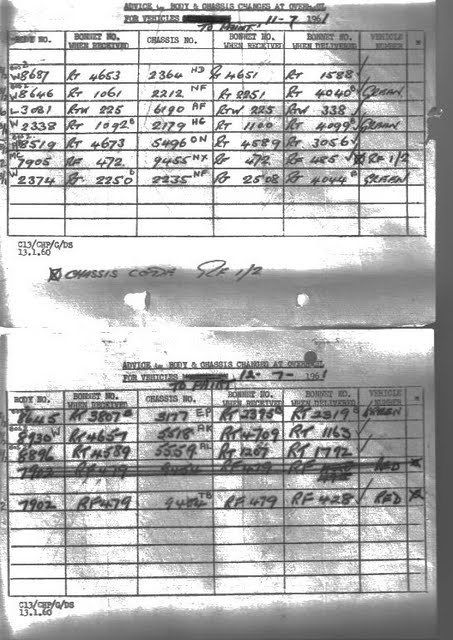 ADVICE to BODY & CHASSIS CHANGES AT OVERHAUL
FOR VEHICLES 11-7-1961
TO PAINT
BODY NO. BONNET NO. WHEN RECEIVED CHASSIS NO. BONNET NO. WHEN RECEIVED BONNET NO. WHEN DELIVERED VEHICLE NUMBER
W8687 RT 4653 2364 RT 4651 RT 1588
W8646 RT 1061 2212 NF RT 2251 RT 4040 GREEN
3081 RTW 225 6190 AF RTW 225 RTW 338
W2338 RT 1092 2179 HG RT 1100 RT 4099 GREEN
8519 RT 4673 5496 ON RT 4589 RT 3056
7905 RF 472 9455 NX RF 472 RF 485 RF 1/2
W2374 RT 2250 2235 NF RT 2508 RT 4044 GREEN
C13/CHP/G/DS
13.1.60
CHASSIS CODE RF 1/2
ADVICE to BODY & CHASSIS CHANGES AT OVERHAUL
FOR VEHICLES 12-7-1961
TO PAINT
BODY NO. BONNET NO. WHEN RECEIVED CHASSIS NO. BONNET NO. WHEN RECEIVED BONNET NO. WHEN DELIVERED VEHICLE NUMBER
8645 RT 3807 3177 EP RT 2395 RT 2319 GREEN
8930 W RT 4657 5518 RT 4709 RT 1163
8896 RT 4589 5559 RT 1207 RT 1792
7902 RF 479 RF 479 RF RED
7902 RF 479 RF 479 RF 428 RED
C13/CHP/G/DS
13.1.60